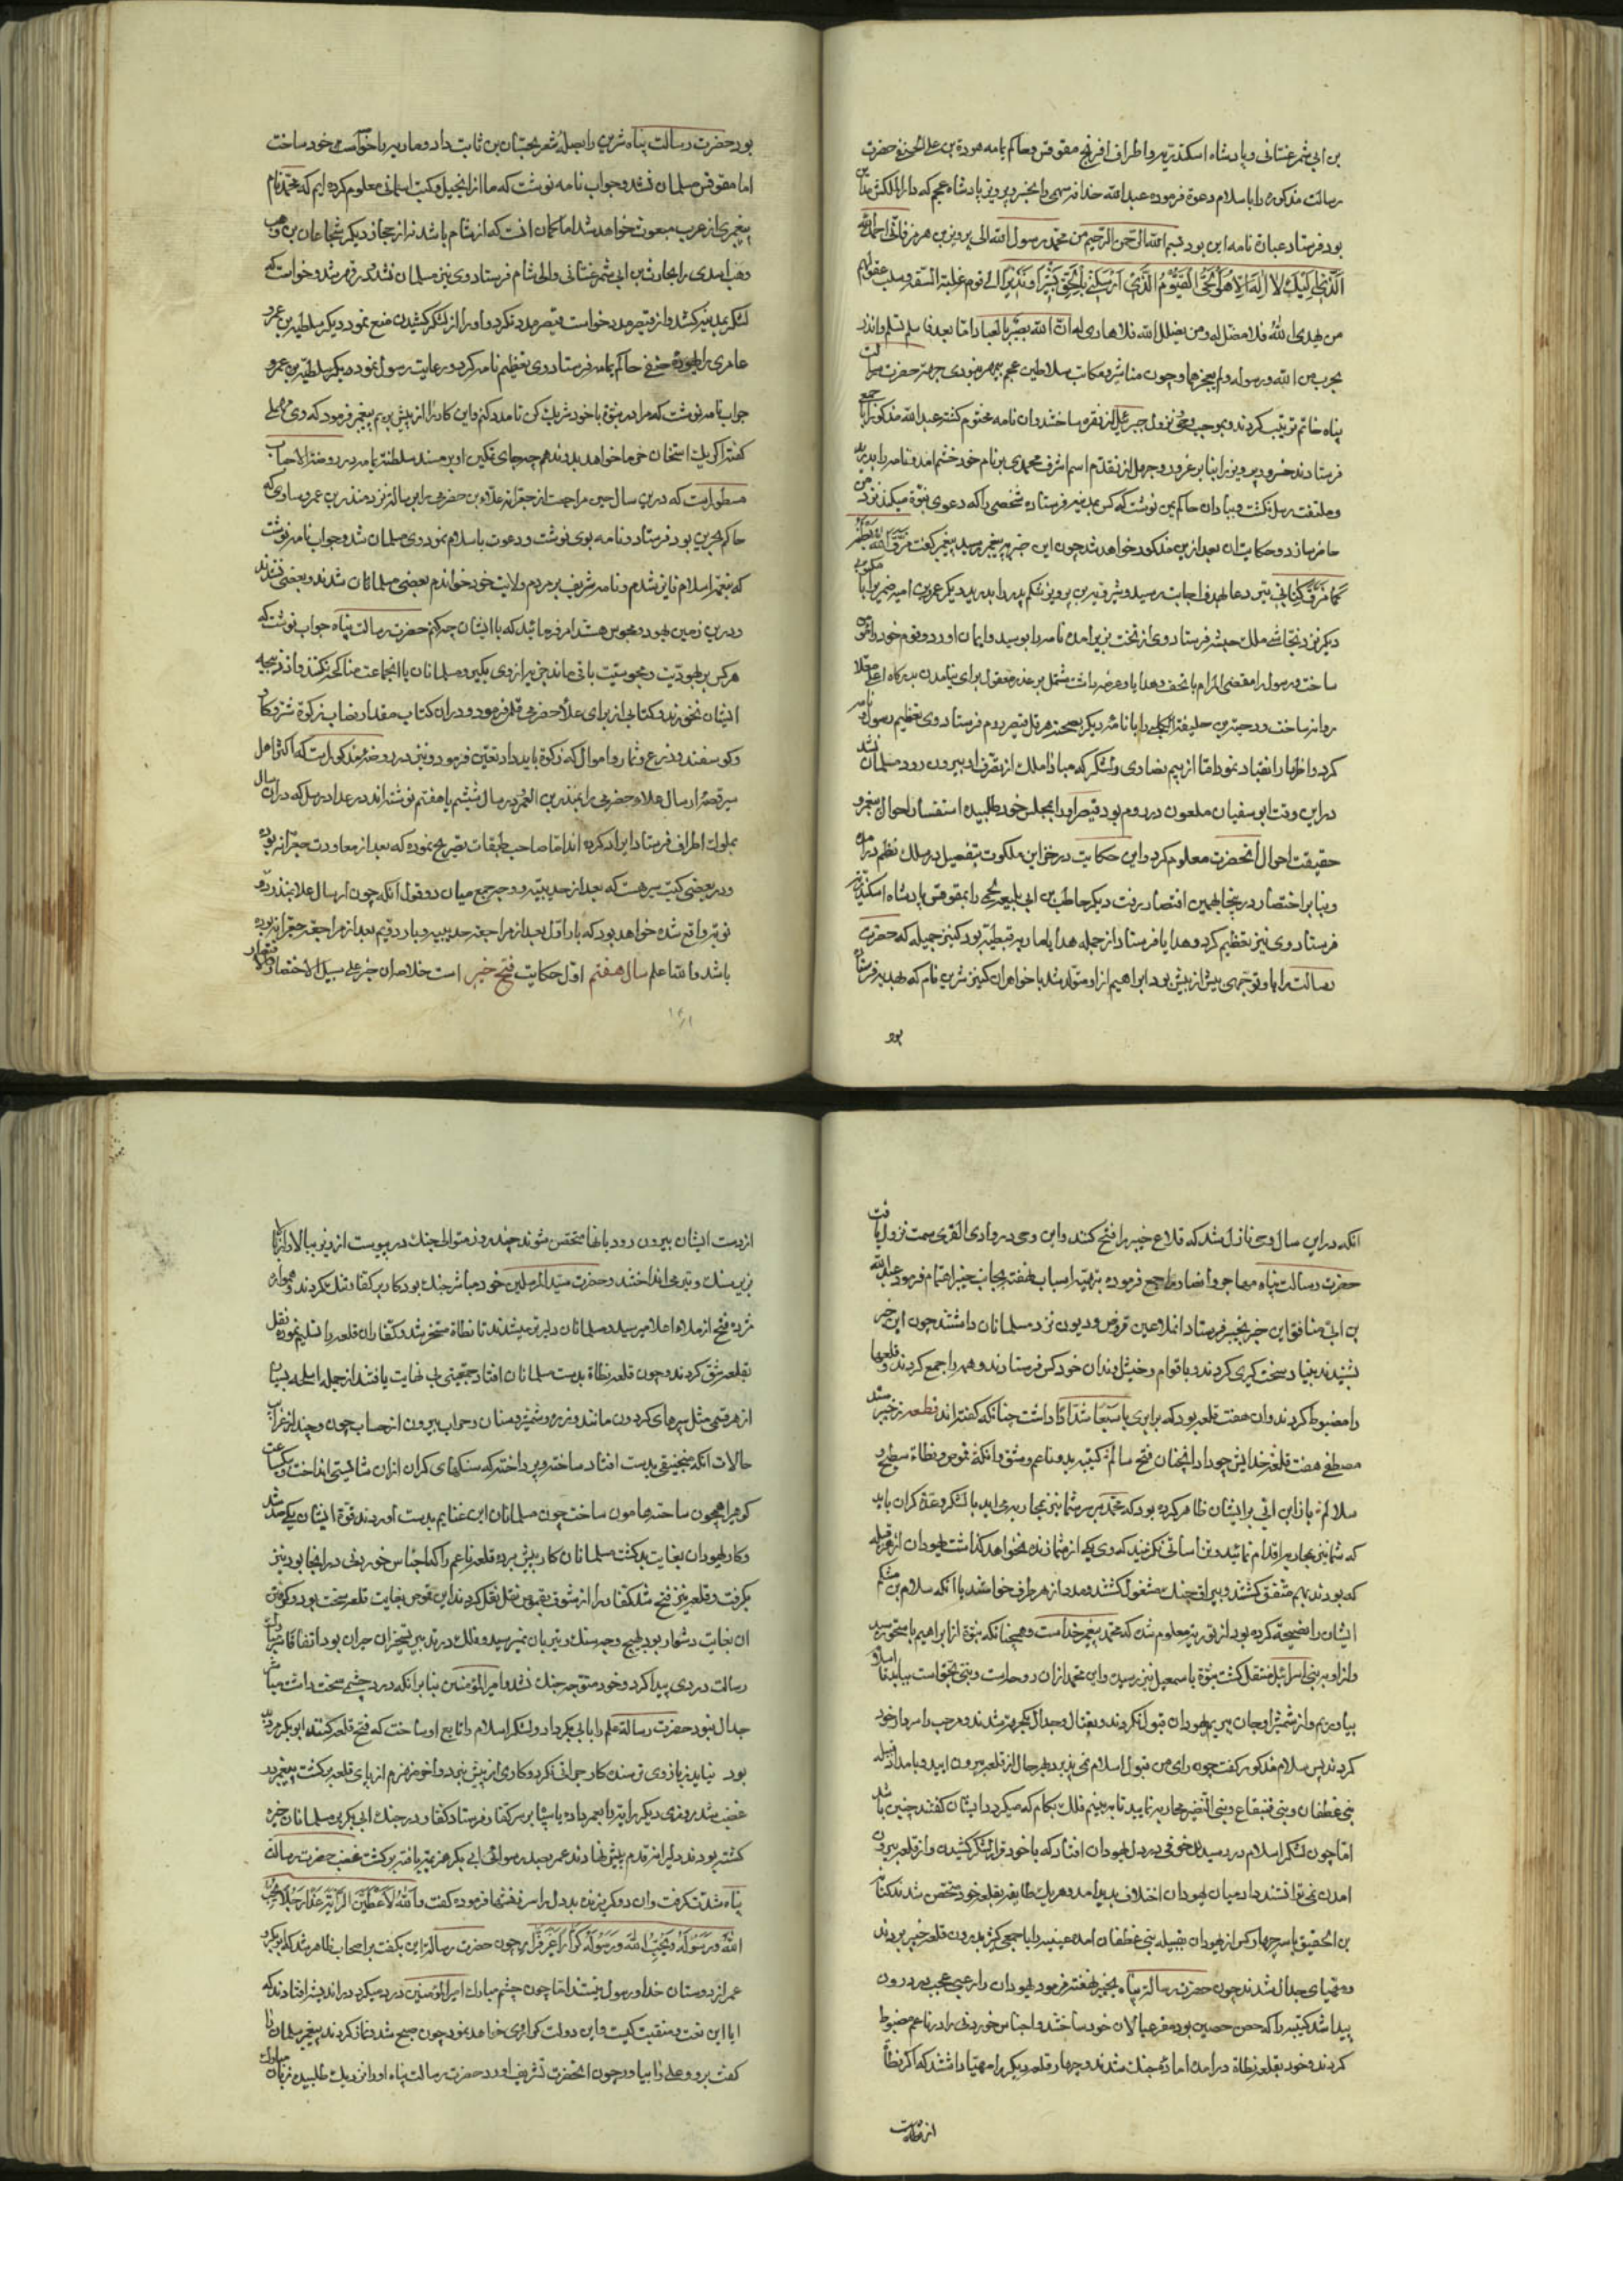 بن ابی شمر غسانی و پادشاه اسکندریه و اطراف افرنج مقوقس و حاکم یمامه هوذة بن علی الحنفی حضرت
رسالت مذکوره را باسلام دعوة فرموده عبدالله حذافه سهمی را بخسرو پرویز پادشاه عجم که دارالملکش مداین
بود فرستاد عبارة نامه این بود بسم الله الرحمن الرحیم من محمد رسول الله الی پرویز بن هرمز فانی احمد الله
الذی الیک لا اله الا هو الحی القیوم الذی ارسلنی بالحق بشیرا و نذیرا الی قوم غلبة السفه و سلب عقولهم
من یهدی الله فلا مضل له و من یضلل الله فلا هادی له ان الله بصیر بالعباد اما بعد فاسلم تسلم وائذن
بحرب من الله و رسوله و لم یعجزهما و چون مناشیر و مکاتب سلاطین عجم بی مهر نبودی جهة حضرت رسالت
پناه خاتم ترتیب کردند و بموجب وحی و نزول جبرئیل از نقره ساختند وان نامه مختوم گشته عبدالله مذکور را با جمعی
فرستادند خسرو پرویز را بنا بر غرور و جهل از تقدم اسم اشرف محمدی بر نام خود خشم امد و نامه را بدرید
و ملتفت رسل نگشت و بباذان حاکم یمن نوشت که کس بمدینه فرستاده شخصی را که دعوی نبوة میکند نزد من
حاضر سازد و حکایت ان بعد ازین مذکور خواهد شد چون این خبر به پیغمبر رسید پیغمبر گفت مزق الله بطنه
کما مزق کتابی تیر دعا بهدف اجابت رسید و شیرویه بن پرویز شکم پدر را بدرید دیگر عمرو بن امیه ضمیری را با مکتوبی
دیگر نزد نجاشی ملک حبشه فرستاد وی از تخت بزیر امده نامه را بوسید و ایمان اورد و قوم خود را
ساخت و رسول را مقضی المرام با تحف و هدایا و عرضه داشت مشتمل بر عذر معقول برای نیامدن بدرگاه اعلی
روانه ساخت و دحیة بن خلیفة الکلبی را با نامه دیگر بصحبت هرقل قیصر روم فرستاد وی تعظیم رسول و نامه
کرد و اظهار انقیاد نمود اما از بیم نصاری و لشکر که مبادا ملک از تصرف او بیرون رود مسلمان نشد
در این وقت ابو سفیان ملعون در روم بود قیصر او را بمجلس خود طلبیده استفسار احوال پیغمبر و
حقیقت احوال انحضرت معلوم کرد و این حکایت در خواین ملکوت بتفصیل در سلک نظم در امده
و بنا بر اختصار در ینجا بهمین اقتصار رفت دیگر حاطب بن ابی بلتعه لخمی را بمقوقس پادشاه اسکندریه
فرستاد وی نیز تعظیم کرد و هدایا فرستاد از جمله هدایا ماریه قبطیه بود کنیز جمیله که حضرت
رسالت را با او توجهی بیش از بیش بود ابراهیم از او متولد شد با خواهر ان کنیز شیرین نام که بهدیه فرستاده
بود
بود حضرت رسالت پناه شیرین را بصله شعر بحسان بن ثابت داد و ماریه را خواست خود ساخت
اما مقوقس مسلمان نشد و جواب نامه نوشت که ما از انجیل و کتب اسمانی معلوم کرده ایم که محمد نام
پیغمبری از عرب مبعوث خواهد شد اما گمان انست که از شام باشد نه از حجاز دیگر شجاع بن وهب
وهب اسدی را بحارث بن ابی شمر غسانی والی شام فرستاد وی نیز مسلمان نشد و در قهر شد و خواست که
لشکر بمدینه کشد و از قیصر مدد خواست قیصر مدد نکرد و او را از لشکر کشیدن منع نمود دیگر سلیط بن عمرو
عامری را بهوذه حنفی حاکم یمامه فرستاد وی تعظیم نامه کرد و رعایت رسول نمود دیگر سلیط بن عمرو
جواب نامه نوشت که مرا در نبوة با خود شریک کن تا مدد کنم و این کار را از پیش بریم پیغمبر فرمود که وی
گفت اگر یک استخوان خرما خواهد بدو ندهم چه جای تمکین او بر مسند سلطنت یمامه در روضة الاحباب
مسطور است که درین سال حین مراجعت از جعرانه علاء بن حضرمی را برسالة نزد منذر بن عمرو ساوی که
حاکم بحرین بود فرستاد و نامه بوی نوشت و دعوت باسلام نمود وی مسلمان شد و جواب نامه نوشت
که بنعمة اسلام فایز شدم و نامه شریف بر مردم ولایت خود خواندم بعضی مسلمانان شدند و بعضی نشدند
و درین زمین یهود و مجوس هستند امر فرمائید که با ایشان چه کنم حضرت رسالت پناه جواب نوشت که
هر کس بر یهودیت و مجوسیت باقی ماند جزیه از وی بگیر و مسلمانان با انجماعت مناکحه نکنند و از ذبیحه
ایشان نخورند و کتابی از برای علاء حضرمی قلمی فرمود و در ان کتاب مقدار نصاب زکوة شتر و گاو
و گوسفند و زرع و ثمار و اموال که زکوة باید داد تعین فرمود و نیز در روضه مذکور است که اکثر اهل
سیر قصه ارسال علاء حضرمی را بمنذر بن العمرو در سال ششم یا هفتم نوشته اند در عداد رسل که در ان سال
بملوک اطراف فرستاد ایراد کرده اند اما صاحب طبقات تصریح نموده که بعد از معاودت جعرانه بوده
و در بعضی کتب سیر هست که بعد از حدیبیه و وجه جمع میان دو قول انکه چون ارسال علا بمنذر
نوبه واقع شده خواهد بود که بار اول بعد از مراجعت حدیبیه و بار دویم بعد از مراجعت جعرانه بوده
باشد والله اعلم سال هفتم اول حکایت فتح خیبر است خلاصه ان خبر علی سبیل الاختصار
انکه در این سال وحی نازل شد که قلاع خیبر را فتح کنند و این وحی در وادی القری سمت نزول یافت
حضرت رسالت پناه مهاجر و انصار را جمع فرموده بتهیه اسباب نهضت بجانب خیبر اهتمام فرمود عبدالله
بن ابی منافق این خبر بخیبر فرستاد انملاعین قروض و دیون نزد مسلمانان داشتند چون این خبر
بشنیدند بنیاد سخت گیری کردند و باقوام و خویشاوندان خود کس فرستادند و همه را جمع کردند و قلعها
را مضبوط کردند وان هفت قلعه بود که برابری با سبعا شدادا داشت چنانکه گفته اند قطعه ز خیبر ستد
مصطفی هفت قلعه خدایش چو داد انچنان فتح سالم کتیبه بد و ناعم و شق و انگه قموص و نطاة و سطیح و
سلالم باز ابن ابی بر ایشان ظاهر کرده بود که محمد بر سر شما نیز بمحاربه می اید با لشکر و عدة گران باید
که شما نیز بمحاربه اقدام نمائید و تن اسانی نگزینید که وی یکی از شما زنده نخواهد گذاشت یهودان از هر قبیله
که بودند بهم متفق گشتند و بیراق جنک مشغول گشتند و مدد از هر طرف خواستند با انکه سلام بن مشکم
ایشان را نصیحت کرده بود از توریة معلوم شد که محمد پیغمبر خداست و همچنانکه نبوة از ابراهیم باسحق رسید
و از او به بنی اسرائیل منتقل گشت نبوة باسمعیل نیز رسید و این محمد از ان روحاست و نبی بحق است بیائید تا اسلام
بیاوریم و از شمشیر او جان ببریم یهودان قبول نکردند و بقتال و جدال یکجهت شدند و مرحب را سردار خود
کردند پس سلام مذکور گفت چون رای من قبول اسلام نمی پذیرد بهر حال از قلعه بیرون ایید و بامداد قبیله
بنی غطفان و بنی قینقاع و بنی النضیر محاربه نمایید تا ببینیم فلک بکام که میگردد ایشان گفتند چنین باشد
اما چون لشکر اسلام در رسید خوفی در دل یهودان افتاد که با خود قرار لشکر کشیدن و از قلعه بیرون
امدن نمی توانستند داد میان یهودان اختلاف پدید امد و هر یک طایفه بقلعه خود متحصن شدند کنانة
بن الحقیق با سه چهار کس از یهودان بقبیله بنی غطفان امده عیینه را با جمعی کثیر بدرون قلعه خیبر بردند
و مهیای جدال شدند چون حضرت رسالة پناه بخیبر نهضت فرمود یهودان را رعبی عجب در درون
پیدا شد کتیبه را که حصن حصین بود مقر عیالان خود ساختند و اجناس خوردنی را در ناعم مضبوط
کردند و خود بقلعه نطاة درامده اماده جنک شدند و چهار قلعه دیگر را مهیا داشتند که اگر نطاة
از دست
از دست ایشان بیرون رود بانها متحصن شوند چند روز متوالی جنک در پیوست از زیر ببالا و از بالا
بزیر سنک و تیر می انداختند و حضرت سید المرسلین خود مباشر جنک بود کار بر کفار تنک کردند و همواره
مژده فتح از ملاء اعلا میرسید و مسلمانان دلیرتر میشدند تا نطاة مسخر شد و کفار ان قلعه را تسلیم نموده نقل
بقلعه شق کردند و چون قلعه نطاة بدست مسلمانان افتاد جمعیتی بی نهایت یافتند از جمله اسلحه بسیار
از هر قسمی مثل سپرهای کردون مانند و زره و شمشیر و سنان و حراب بیرون از حساب چون و چند از غرایب
حالات انکه منجنیقی بدست افتاد ساخته و پرداخته که سنگهای گران از ان شایستی انداخت و بیکساعت
کوه را همچون ساحت هامون ساخت چون مسلمانان این غنایم بدست اوردند قوة ایشان یکی صد شد
و کار یهودان بغایت بد گشت مسلمانان کار پیش برده قلعه ناعم را که اجناس خوردنی در انجا بود نیز
بگرفت و قلعه نیز فتح شد کفار را از شق بقموص نقل کردند این قموص بغایت قلعه سخت بود و گرفتن
ان بغایت دشوار بود هیچ وجه سنک و تیر بان نمیرسید و فلک در تدبیر تسخیر ان حیران بود اتفاقا حضرت
رسالت درد سری پیدا کرد و خود متوجه جنک نشد و امیر المؤمنین بنا بر انکه درد چشمی سخت داشت مباشر
جدال نبود حضرت رسالة علم را بابی بکر داد و لشکر اسلام را تابع او ساخت که فتح قلعه کنند ابو بکر مرد پیر
بود نیاید ز بازوی ترسنده کار جوانی نکرد و کاری از پیش نبرد و اخر منهزم از پای قلعه برگشت پیغمبر در
غضب شد روزی دیگر رایت را بعمر داده با سپاه بر سر کفار فرستاد کفار در جنک ابی بکر بر مسلمانان خیره
گشته بودند دلیرانه قدم پیش نهادند عمر بصد رسوائی ابی بکر هزیمت یافته برگشت غضب حضرت رسالت
پناه شدت گرفت وان دو گریزنده بد دل را سرزنشها فرموده گفت والله لاعطین الرایة غدا رجلا یحب
الله و رسوله و یحبه الله و رسوله کرارا غیر فرار چون حضرت رسالة این بگفت بر اصحاب ظاهر شد که ابو بکر و
عمر از دوستان خدا و رسول نیستند اما چون چشم مبارک امیر المؤمنین درد میکرد در اندیشه افتادند که
ایا این نعت و منقبت کیست و این دولت که را روی خواهد نمود چون صبح شد و نماز کردند پیغمبر سلمان را
گفت برو و علی را بیاور چون انحضرت تشریف اورد حضرت رسالت پناه او را نزدیک طلبیده زبان مبارک